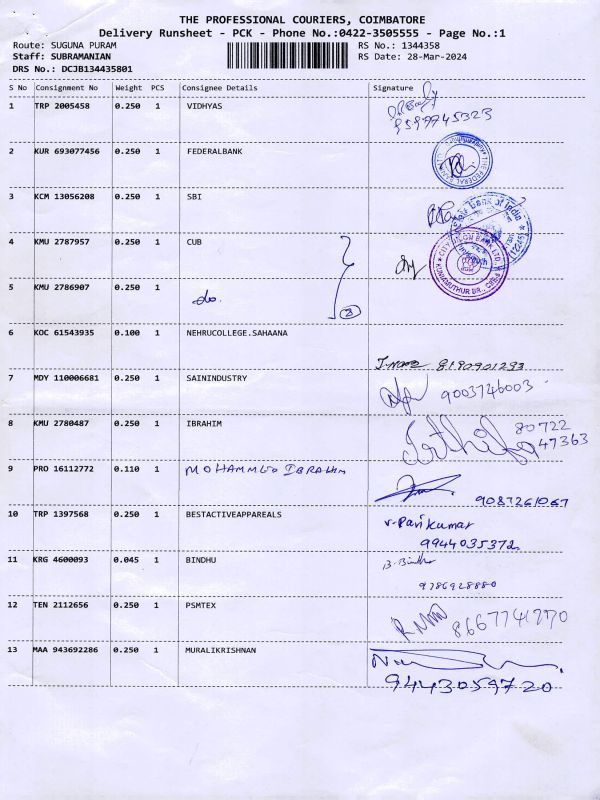 THE PROFESSIONAL COURIERS, COIMBATORE
Delivery Runsheet - PCK - Phone No.:0422-3505555 - Page No.:1
Route: SUGUNA PURAM RS No.: 1344358
Staff: SUBRAMANIAN RS Date: 28-Mar-2024
DRS No.: DCJB134435801
S No Consignment No Weight PCS Consignee Details Signature
1 TRP 2005458 0.250 1 VIDHYAS
2 KUR 693077456 0.250 1 FEDERALBANK
3 KCM 13056208 0.250 1 SBI
4 KMU 2787957 0.250 1 CUB
5 KMU 2786907 0.250 1 do. 2
6 KOC 61543935 0.100 1 NEHRUCOLLEGE.SAHAANA
8190901293
7 MDY 110006681 0.250 1 SAININDUSTRY
9003746003
8 KMU 2780487 0.250 1 IBRAHIM
80722
47363
9 PRO 16112772 0.110 1 MOHAMMED IBRAHIM
9087261067
10 TRP 1397568 0.250 1 BESTACTIVEAPPAREALS
V. Pavikumar
9944035372
11 KRG 4600093 0.045 1 BINDHU
B. Bindhu
9786928880
12 TEN 2112656 0.250 1 PSMTEX
13 MAA 943692286 0.250 1 MURALIKRISHNAN
9443059720